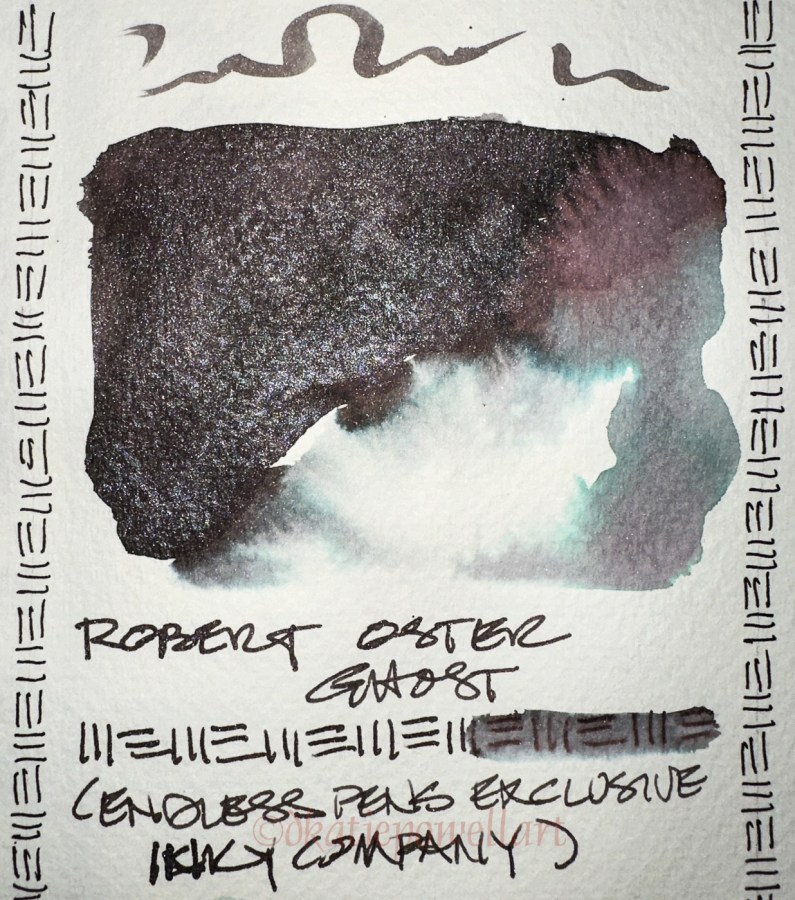 ROBERT OSTER
GHOST
(ENDLESS PENS EXCLUSIVE
©okatiepowellart
INKY COMPANY)